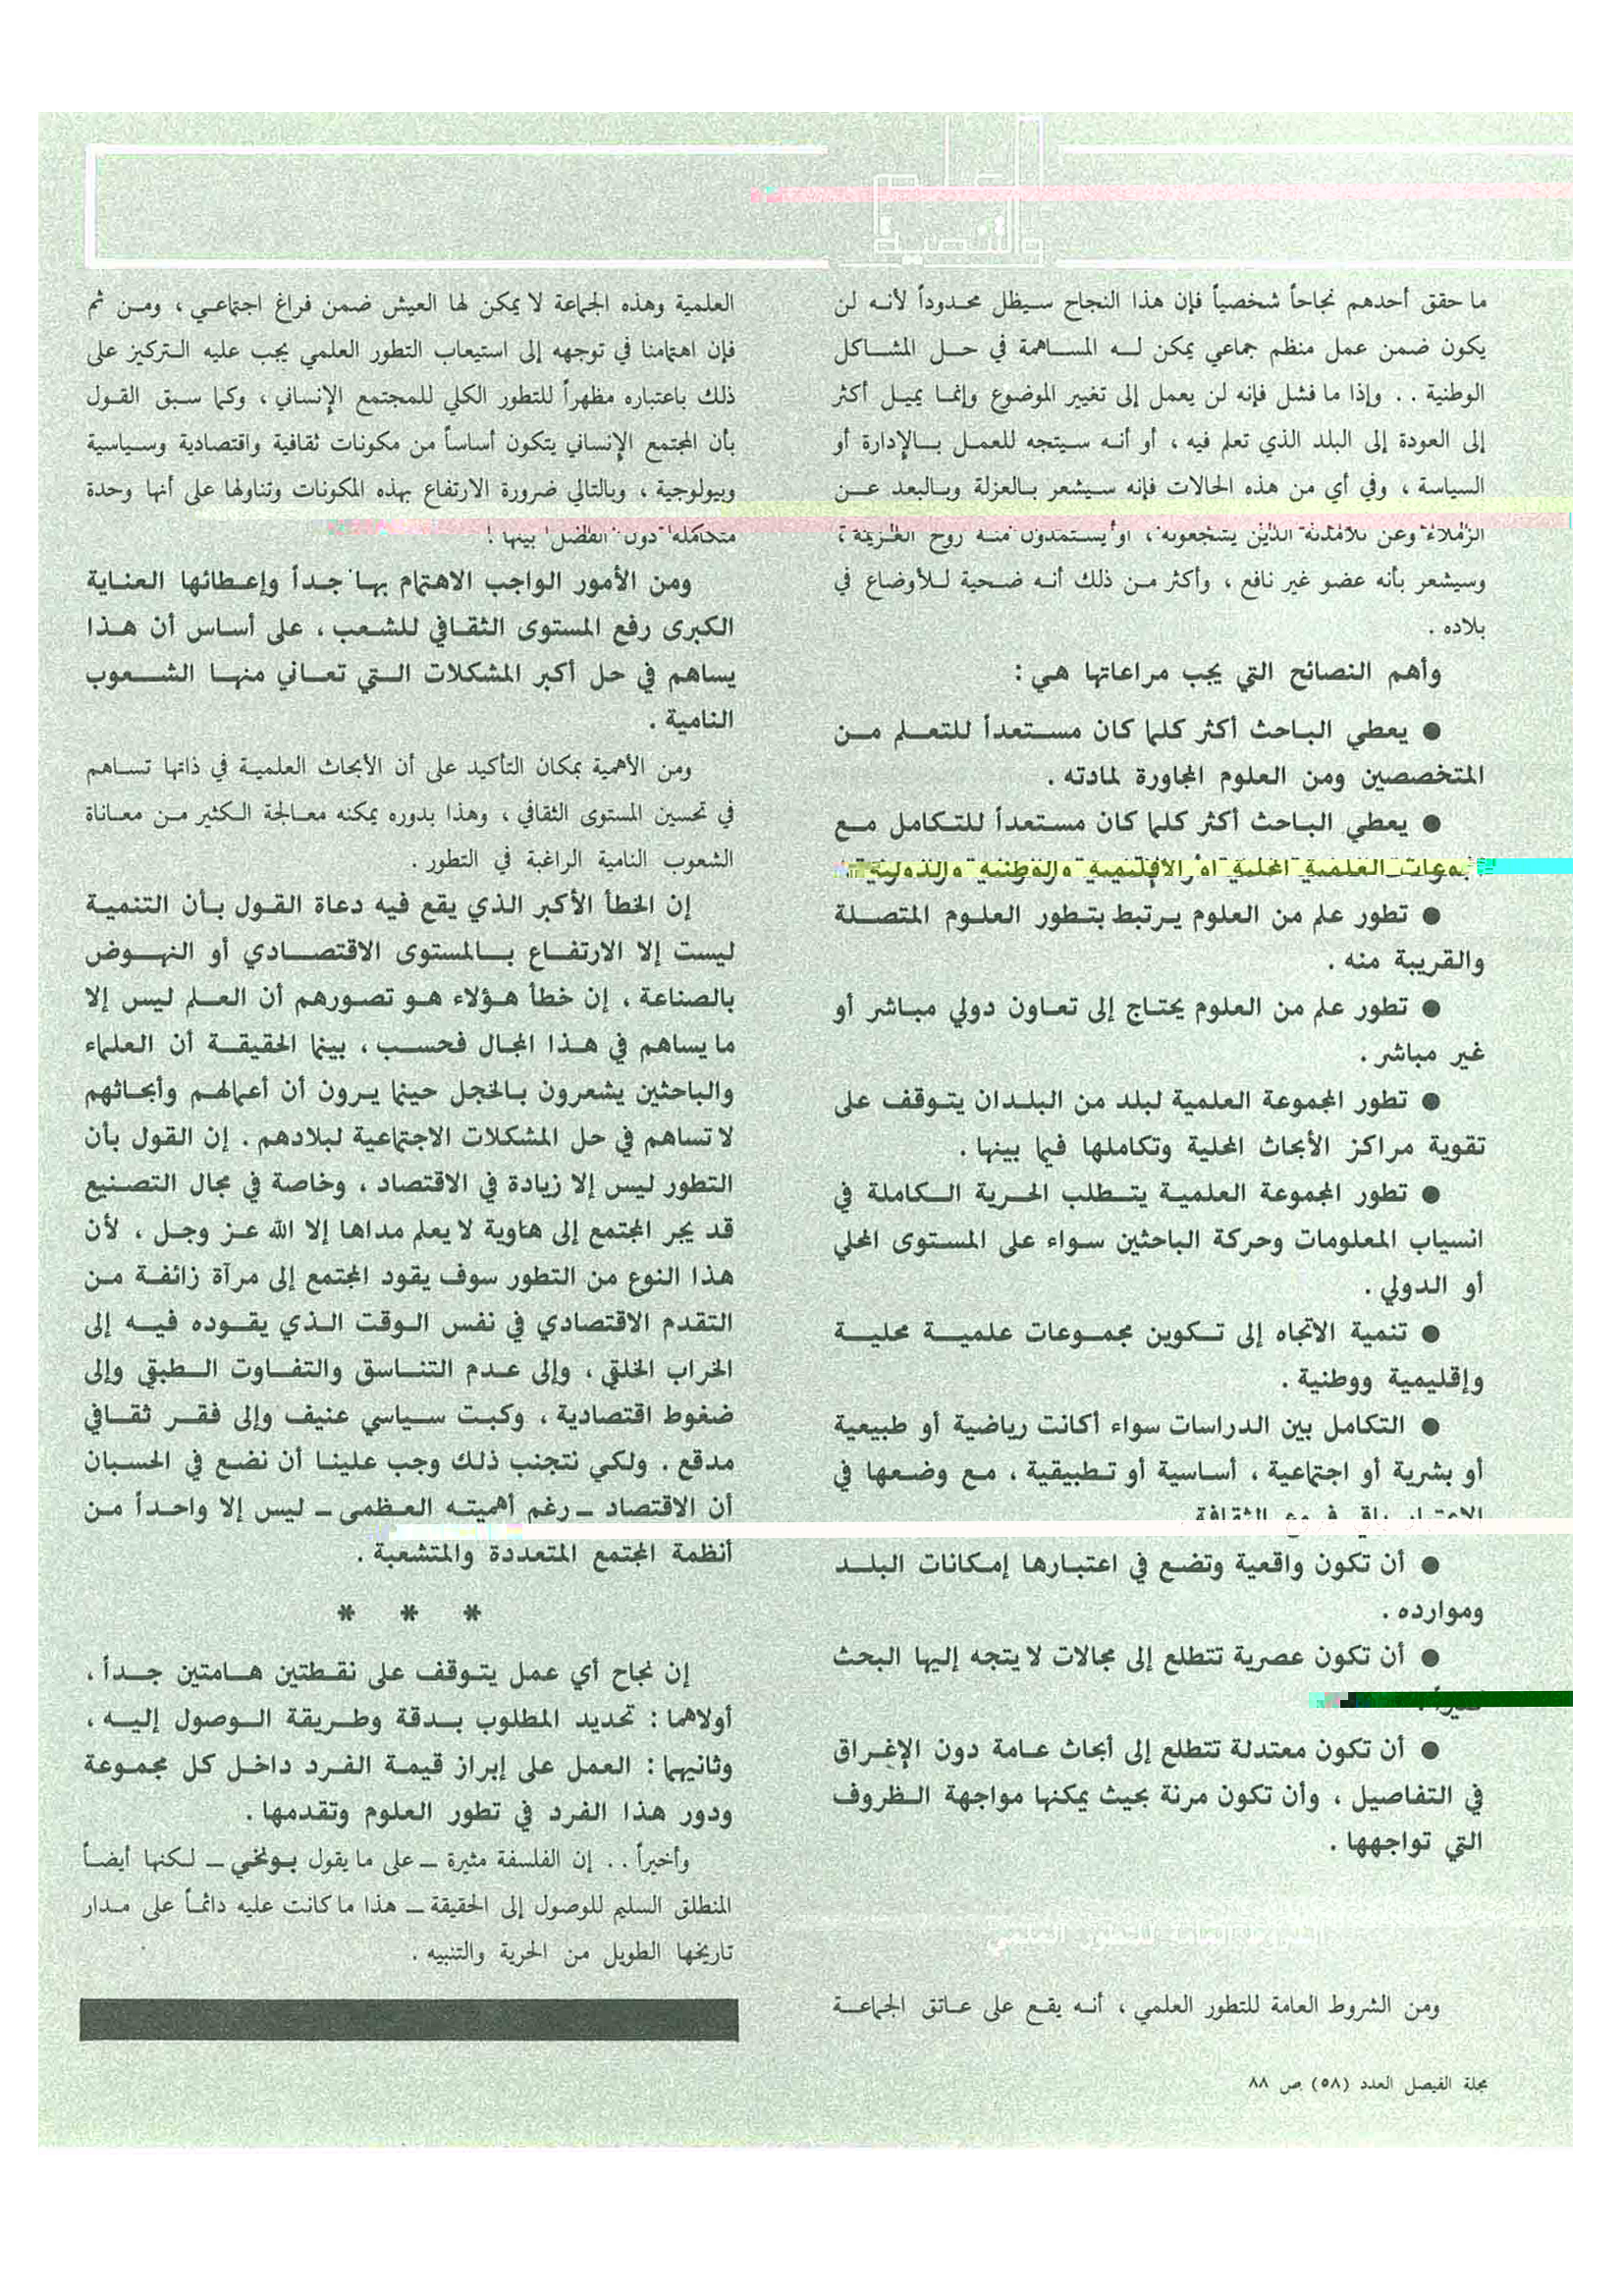 والتنمية
ما حقق أحدهم نجاحاً شخصياً فإن هذا النجاح سيظل محدوداً لأنه لن
يكون ضمن عمل منظم جماعي يمكن له المساهمة في حل المشاكل
الوطنية . . وإذا ما فشل فإنه لن يعمل إلى تغيير الموضوع وإنما يميل أكثر
إلى العودة إلى البلد الذي تعلم فيه ، أو أنه سيتجه للعمل بالإدارة أو
السياسة ، وفي أي من هذه الحالات فإنه سيشعر بالعزلة وبالبعد عن
الزملاء وعن تلامذته الذين يشجعونه ، أو يستمدون منه روح العزيمة ،
وسيشعر بأنه عضو غير نافع ، وأكثر من ذلك أنه ضحية للأوضاع في
بلاده .
وأهم النصائح التي يجب مراعاتها هي :
● يعطي الباحث أكثر كلما كان مستعداً للتعلم من
المتخصصين ومن العلوم المجاورة لمادته .
● يعطي الباحث أكثر كلما كان مستعداً للتكامل مع
العلمية المحلية أو الإقليمية والوطنية والدولية .
● تطور علم من العلوم يرتبط بتطور العلوم المتصلة
والقريبة منه .
● تطور علم من العلوم يحتاج إلى تعاون دولي مباشر أو
غير مباشر .
● تطور المجموعة العلمية لبلد من البلدان يتوقف على
تقوية مراكز الأبحاث المحلية وتكاملها فيما بينها .
● تطور المجموعة العلمية يتطلب الحرية الكاملة في
انسياب المعلومات وحركة الباحثين سواء على المستوى المحلي
أو الدولي .
● تنمية الاتجاه إلى تكوين مجموعات علمية محلية
وإقليمية ووطنية .
● التكامل بين الدراسات سواء أكانت رياضية أو طبيعية
أو بشرية أو اجتماعية ، أساسية أو تطبيقية ، مع وضعها في
الاعتبار باقي فروع الثقافة .
● أن تكون واقعية وتضع في اعتبارها إمكانات البلد
وموارده .
● أن تكون عصرية تتطلع إلى مجالات لا يتجه إليها البحث
● أن تكون معتدلة تتطلع إلى أبحاث عامة دون الإغراق
في التفاصيل ، وأن تكون مرنة بحيث يمكنها مواجهة الظروف
التي تواجهها .
الشروط العامة للتطور العلمي
ومن الشروط العامة للتطور العلمي ، أنه يقع على عاتق الجماعة
العلمية وهذه الجماعة لا يمكن لها العيش ضمن فراغ اجتماعي ، ومن ثم
فإن اهتمامنا في توجهه إلى استيعاب التطور العلمي يجب عليه التركيز على
ذلك باعتباره مظهراً للتطور الكلي للمجتمع الإنساني ، وكما سبق القول
بأن المجتمع الإنساني يتكون أساساً من مكونات ثقافية واقتصادية وسياسية
وبيولوجية ، وبالتالي ضرورة الارتفاع بهذه المكونات وتناولها على أنها وحدة
متكاملة دون الفصل بينها !
ومن الأمور الواجب الاهتمام بها جداً وإعطائها العناية
الكبرى رفع المستوى الثقافي للشعب ، على أساس أن هذا
يساهم في حل أكبر المشكلات التي تعاني منها الشعوب
النامية .
ومن الأهمية بمكان التأكيد على أن الأبحاث العلمية في ذاتها تساهم
في تحسين المستوى الثقافي ، وهذا بدوره يمكنه معالجة الكثير من معاناة
الشعوب النامية الراغبة في التطور .
إن الخطأ الأكبر الذي يقع فيه دعاة القول بأن التنمية
ليست إلا الارتفاع بالمستوى الاقتصادي أو النهوض
بالصناعة ، إن خطأ هؤلاء هو تصورهم أن العلم ليس إلا
ما يساهم في هذا المجال فحسب ، بينما الحقيقة أن العلماء
والباحثين يشعرون بالخجل حينما يرون أن أعمالهم وأبحاثهم
لا تساهم في حل المشكلات الاجتماعية لبلادهم . إن القول بأن
التطور ليس إلا زيادة في الاقتصاد ، وخاصة في مجال التصنيع
قد يجر المجتمع إلى هاوية لا يعلم مداها إلا الله عز وجل ، لأن
هذا النوع من التطور سوف يقود المجتمع إلى مرآة زائفة من
التقدم الاقتصادي في نفس الوقت الذي يقوده فيه إلى
الخراب الخلقي ، وإلى عدم التناسق والتفاوت الطبقي وإلى
ضغوط اقتصادية ، وكبت سياسي عنيف وإلى فقر ثقافي
مدقع . ولكي نتجنب ذلك وجب علينا أن نضع في الحسبان
أن الاقتصاد ــ رغم أهميته العظمى ــ ليس إلا واحداً من
أنظمة المجتمع المتعددة والمتشعبة .
* * *
إن نجاح أي عمل يتوقف على نقطتين هامتين جداً ،
أولاهما : تحديد المطلوب بدقة وطريقة الوصول إليه ،
وثانيهما : العمل على إبراز قيمة الفرد داخل كل مجموعة
ودور هذا الفرد في تطور العلوم وتقدمها .
وأخيراً . . إن الفلسفة مثيرة ــ على ما يقول بونخي ــ لكنها أيضاً
المنطلق السليم للوصول إلى الحقيقة ــ هذا ما كانت عليه دائماً على مدار
تاريخها الطويل من الحرية والتنبيه .
مجلة الفيصل العدد (٥٨) ص ٨٨